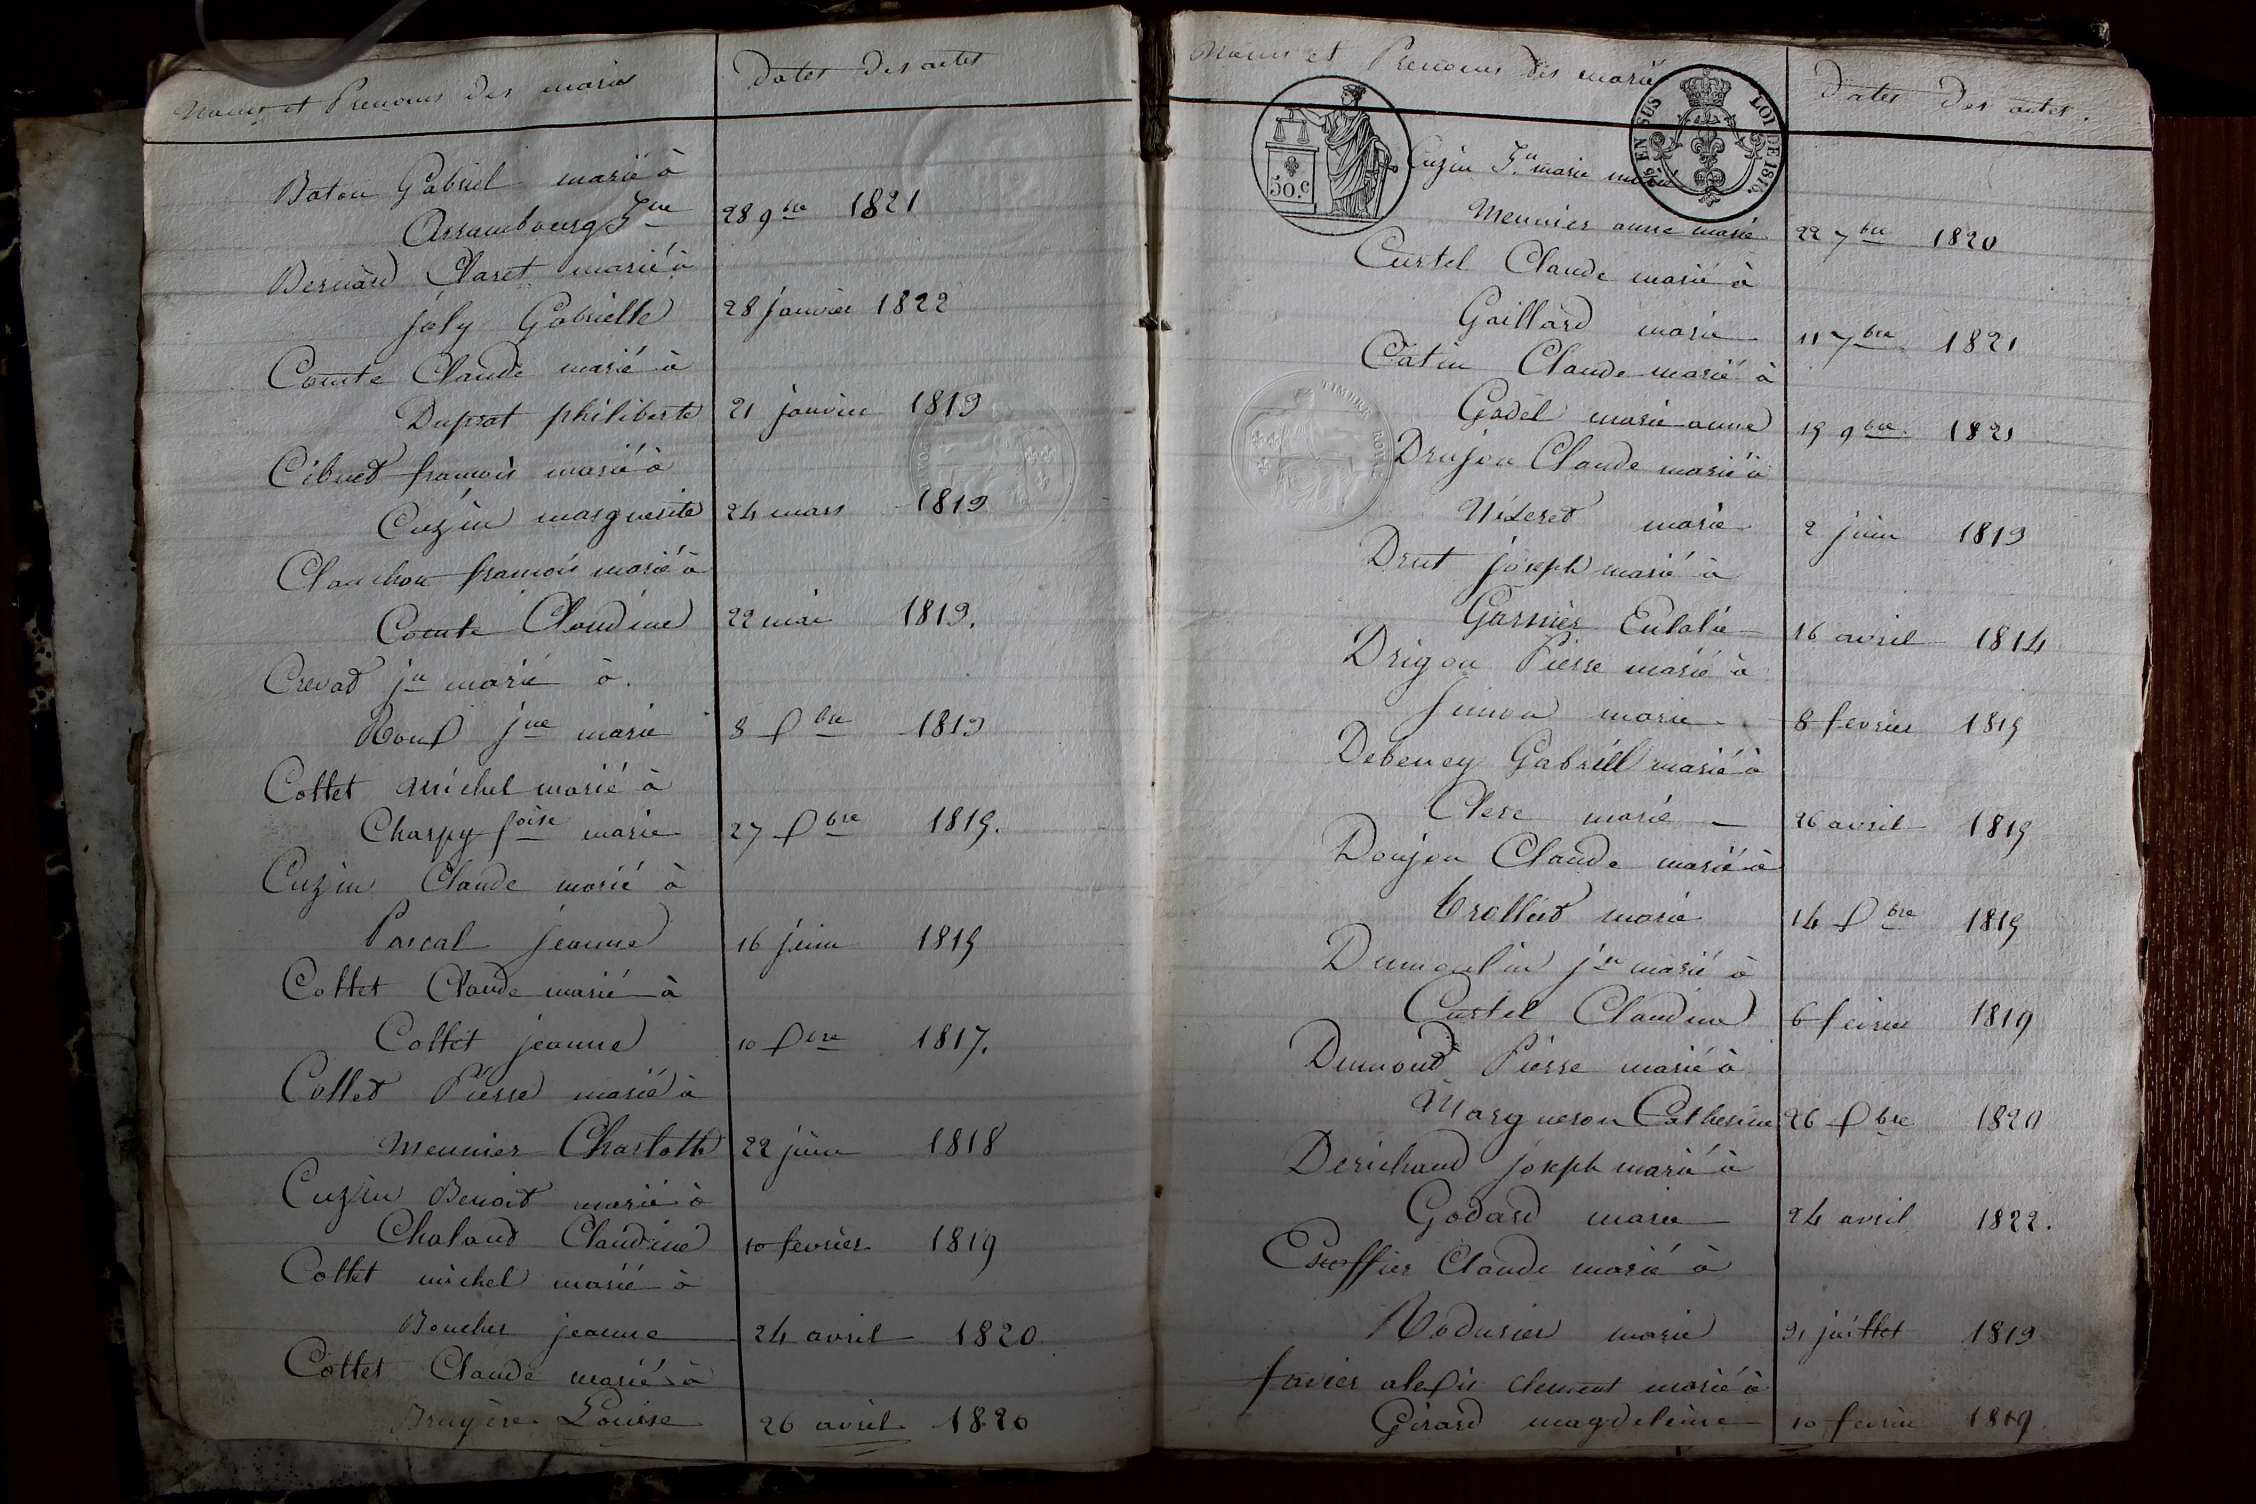 Noms et Prenoms des mariés
Dates des actes
Baton Gabriel marié à
Assambourg Jne 28 9bre 1821
Bernard Claret marié à
joly Gabrielle 28 janvier 1822
Comte Claude marié à
Duprat philiberte 21 janvier 1819
Cibuet francois marié à
Cuzin marguerite 24 mars 1819
Clanchon francois marié à
Comte Claudine 22 mai 1819.
Crevat jn marié à
Roux jne marie 8 Xbre 1819
Collet michel marié à
Charpy foise marie 27 Xbre 1819.
Cuzin Claude marié à
Pascal jeanne 16 juin 1819
Collet Claude marié à
Collet jeanne 10 Xbre 1817.
Collet Pierre marié à
Meunier Charlotte 22 juin 1818
Cuzin Benoit marié à
Chaland Claudine 10 fevrier 1819
Collet michel marié à
Boucher jeanne 24 avril 1820
Collet Claude marié à
Bruyère Louise 26 avril 1820
Noms et Prenoms des mariés
Dates des actes.
50.c
EN SUS LOI DE 1816.
Cuzin Jn marie marié
Meunier anne marie 22 7bre 1820
Curtel Claude marié à
Gaillard marie 11 7bre 1821
Catin Claude marié à
Godel marie anne 19 9bre 1821
TIMBRE ROYAL
Drujon Claude marié à
Nizeret marie 2 juin 1819
Drut joseph marié à
Garnier Eulalie 16 avril 1814
Drigon Pierre marié à
Simon marie 8 fevrier 1819
Debeney Gabriel marié à
Clerc marie 26 avril 1819
Doujon Claude marié à
trolliet marie 14 Xbre 1819
Dumoulin jn marié à
Curtel Claudine 6 fevrier 1819
Dumond Pierre marié à
Margueron Catherine 26 Xbre 1820
Derichaud joseph marié à
Godard marie 24 avril 1822.
Escoffier Claude marié à
Rodurier marie 21 juillet 1819
favier alexis clement marié à
Girard magdeleine 10 fevrier 1819